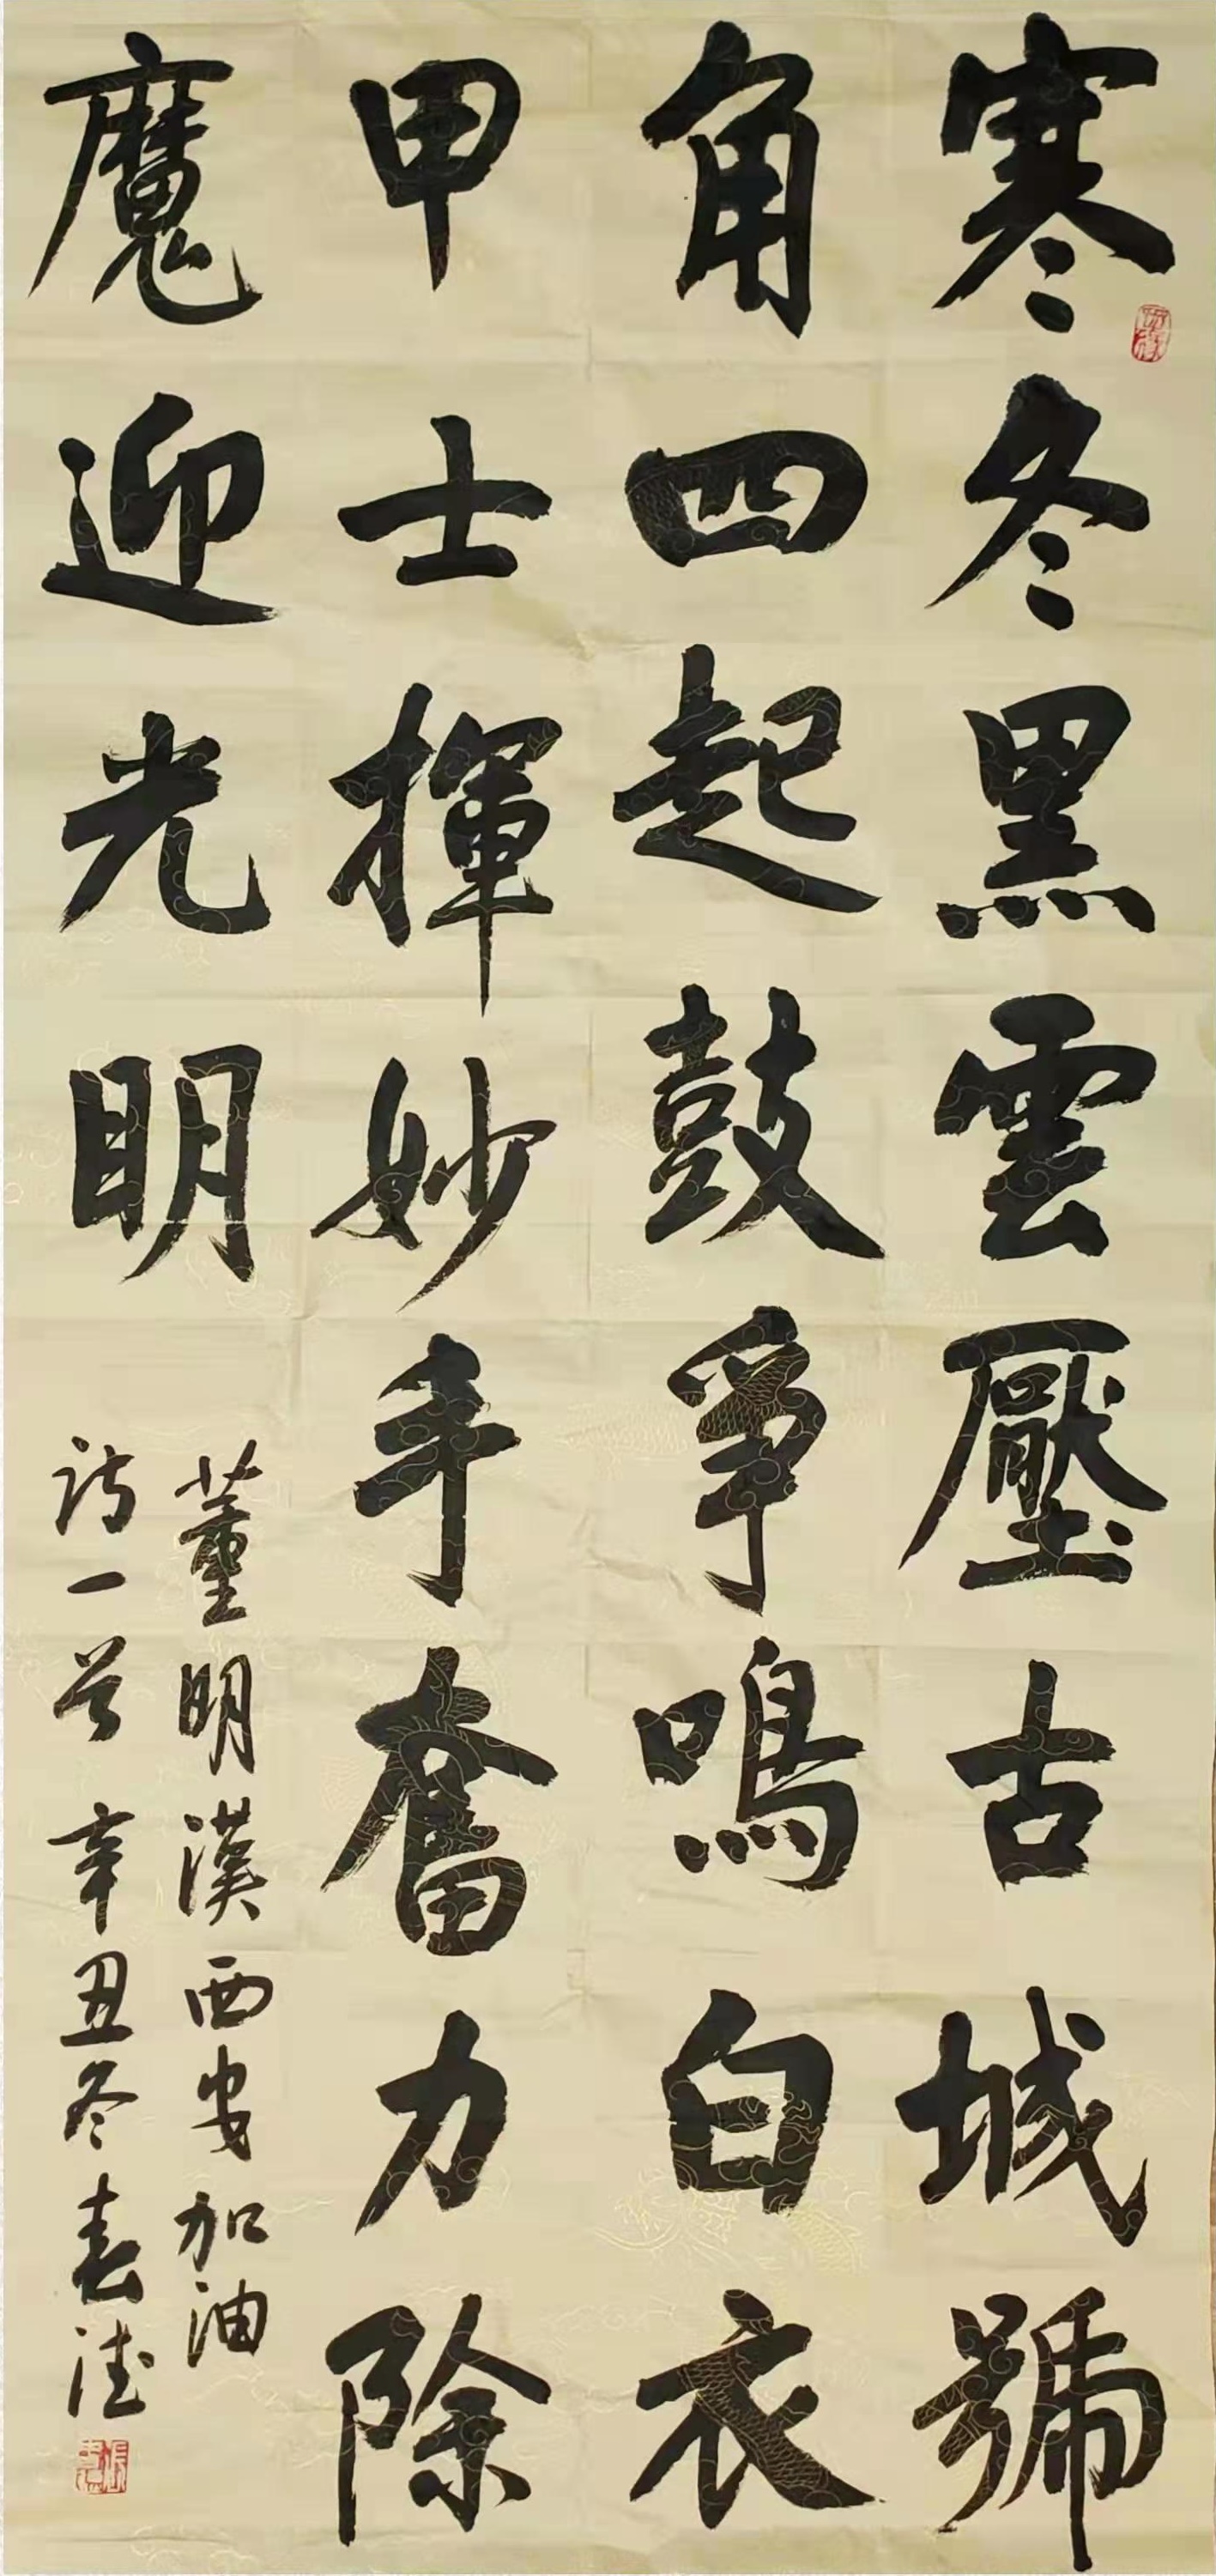 寒冬黑雲壓古城號
角四起鼓爭鳴白衣
甲士揮妙手奮力除
魔迎光明
董明漢西安加油
诗一首辛丑冬春德